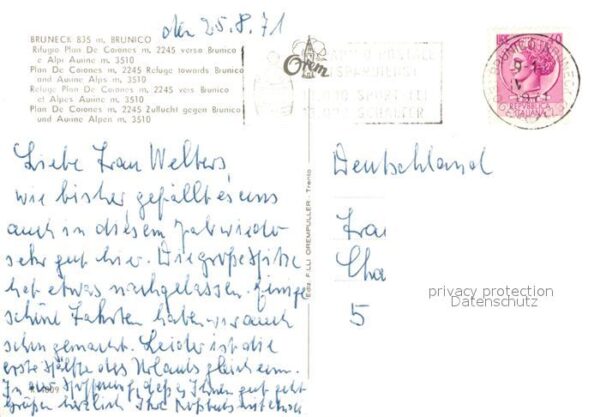 den 25.8.71
BRUNECK 835 m, BRUNICO
Rifugio Plan De Corones m. 2245 verso Brunico
e Alpi Aurine m. 3510
Plan De Corones m. 2245 Refuge towards Brunico
and Aurine Alps m. 3510
Plan De Corones m. 2245 Refuge vers Brunico
et Alpes Aurine m. 3510
Plan De Corones m. 2245 Zuflucht gegen Brunico
und Aurine Alpen m. 3510
REPUBBLICA
ITALIANA
Liebe Frau Welters,
wie bisher gefällt es uns
auch in diesem Jahr wieder
sehr gut hier. Die große Hitze
hat etwas nachgelassen. Einige
schöne Fahrten haben wir auch
schon gemacht. Leider ist die
erste Hälfte des Urlaubs gleich um.
In der Hoffnung, daß es Ihnen gut geht
grüßen herzlich Ihre
Ediz. F.LLI OREMPULLER - Trento
Deutschland
Frau
Cha
5
privacy protection
Datenschutz